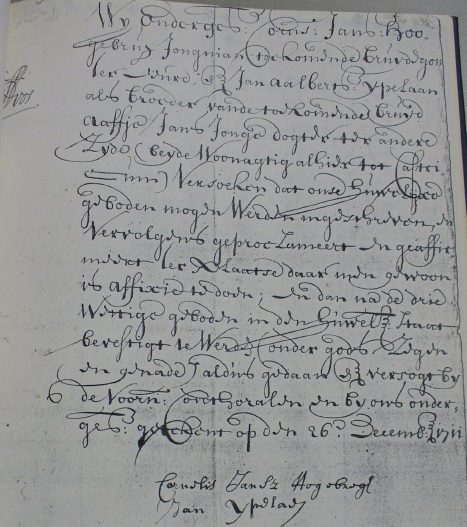 Wy onderges: Corns: Jans: Hoo-
gebrug Jongman toekomende bruydegom
ter eenre: en Jan Aalberts: Ypelaan
als broeder vande toekomende bruyd
Aaffje Jans Jonge dogter ter andere
Zyde (beyde Woonagtig alhier tot
Versoeken dat onse Huwelyxe
geboden mogen Werden ingeschreven, en
Vervolgens geproclameert en geaffic-
meert ter Plaatse daar men gewoon
is affixie te doen; en dan na de drie
Wettige geboden in den Huwel: staat
bevestigt te Werden onder gods Zegen
en genade Taldus gedaan en versogt by
de Voorn: en by ons onder-
ges: getekent op den 26: Decemb: 1711
Cornelis Jansz Hogebregt
Jan Ypelaan